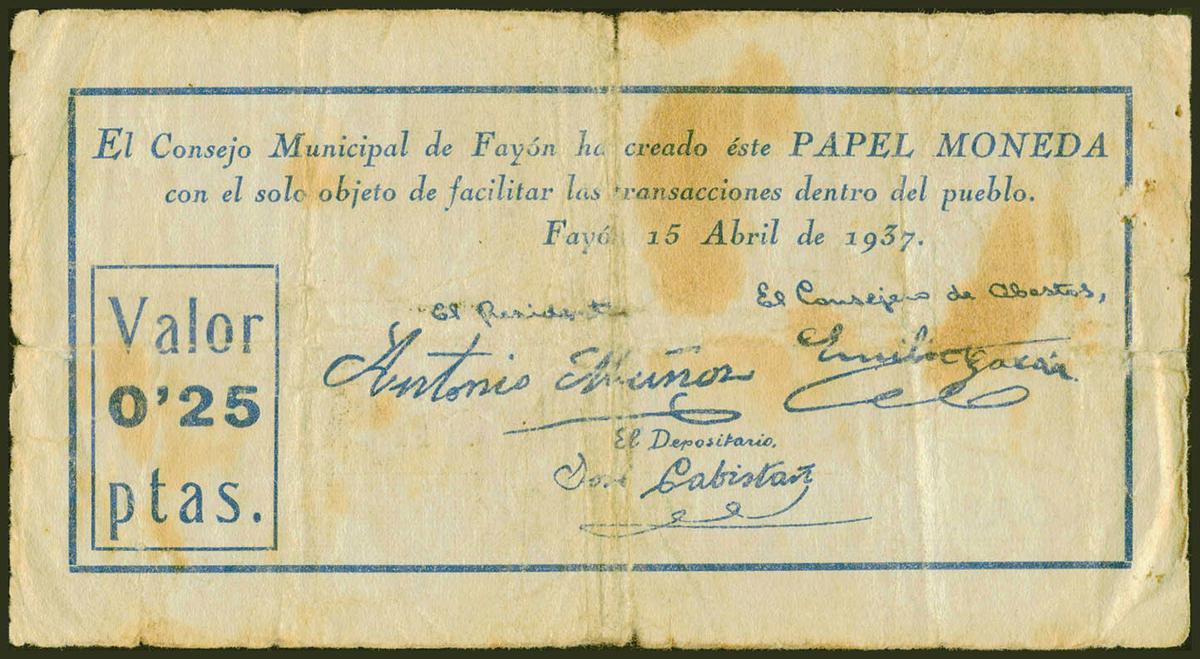 El Consejo Municipal de Fayón ha creado éste PAPEL MONEDA
con el solo objeto de facilitar las transacciones dentro del pueblo.
Fayón 15 Abril de 1937.
Valor
0'25
ptas.
El Presidente
Antonio Muñoz
El Consejero de Abastos,
Emilio
El Depositario,
José Cabistañ